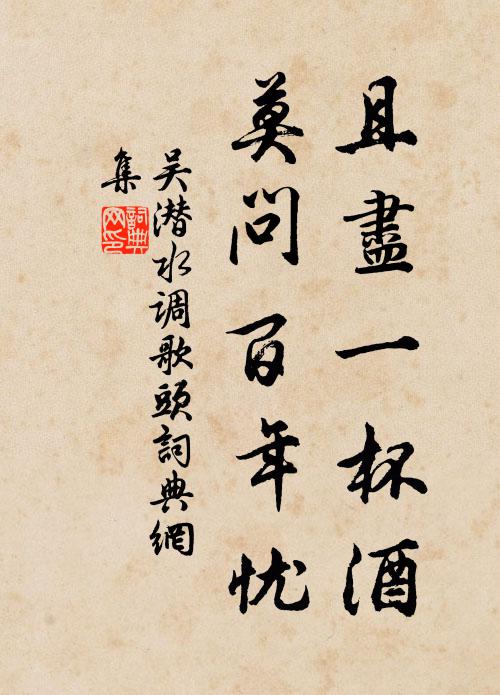 且盡一杯酒
莫問百年忧
吴潜水调歌頭詞典網
集
詞典網印